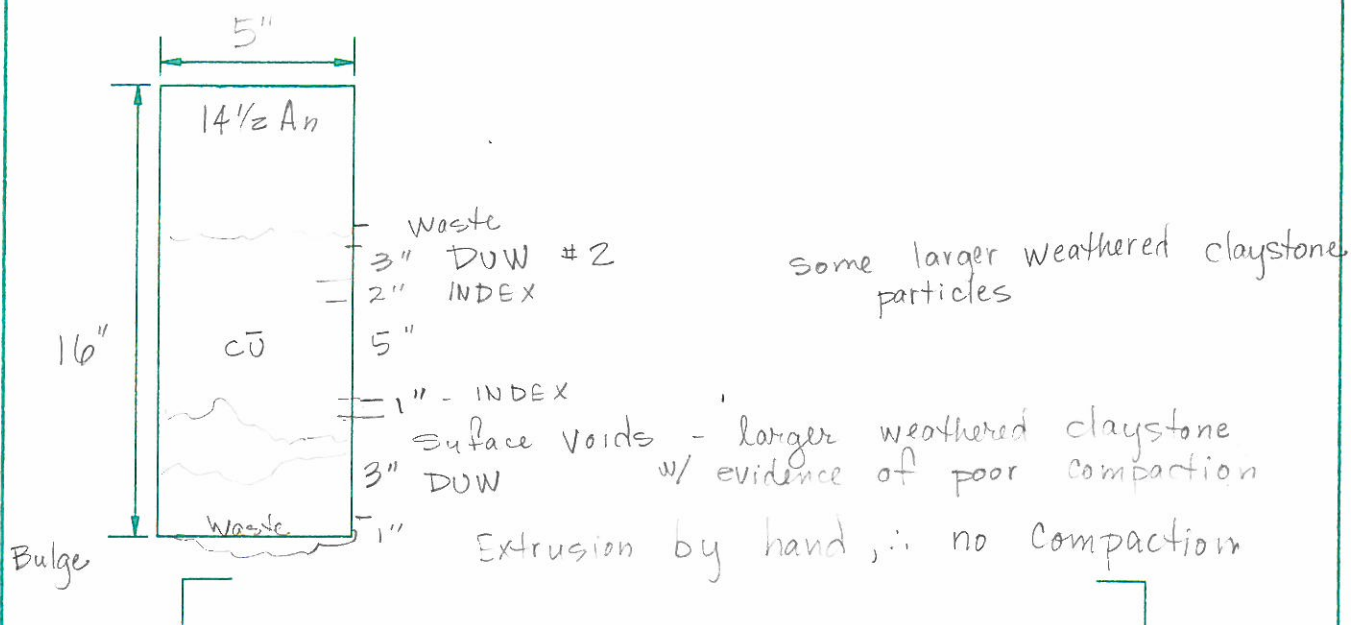 5"
14 1/2 An
Waste
3" DUW #2
some larger weathered claystone
particles
2" INDEX
16"
cū
5"
1" - INDEX
Suface Voids - larger weathered claystone
3" DUW
w/ evidence of poor compaction
Waste
1"
Extrusion by hand, ∴ no Compaction
Bulge